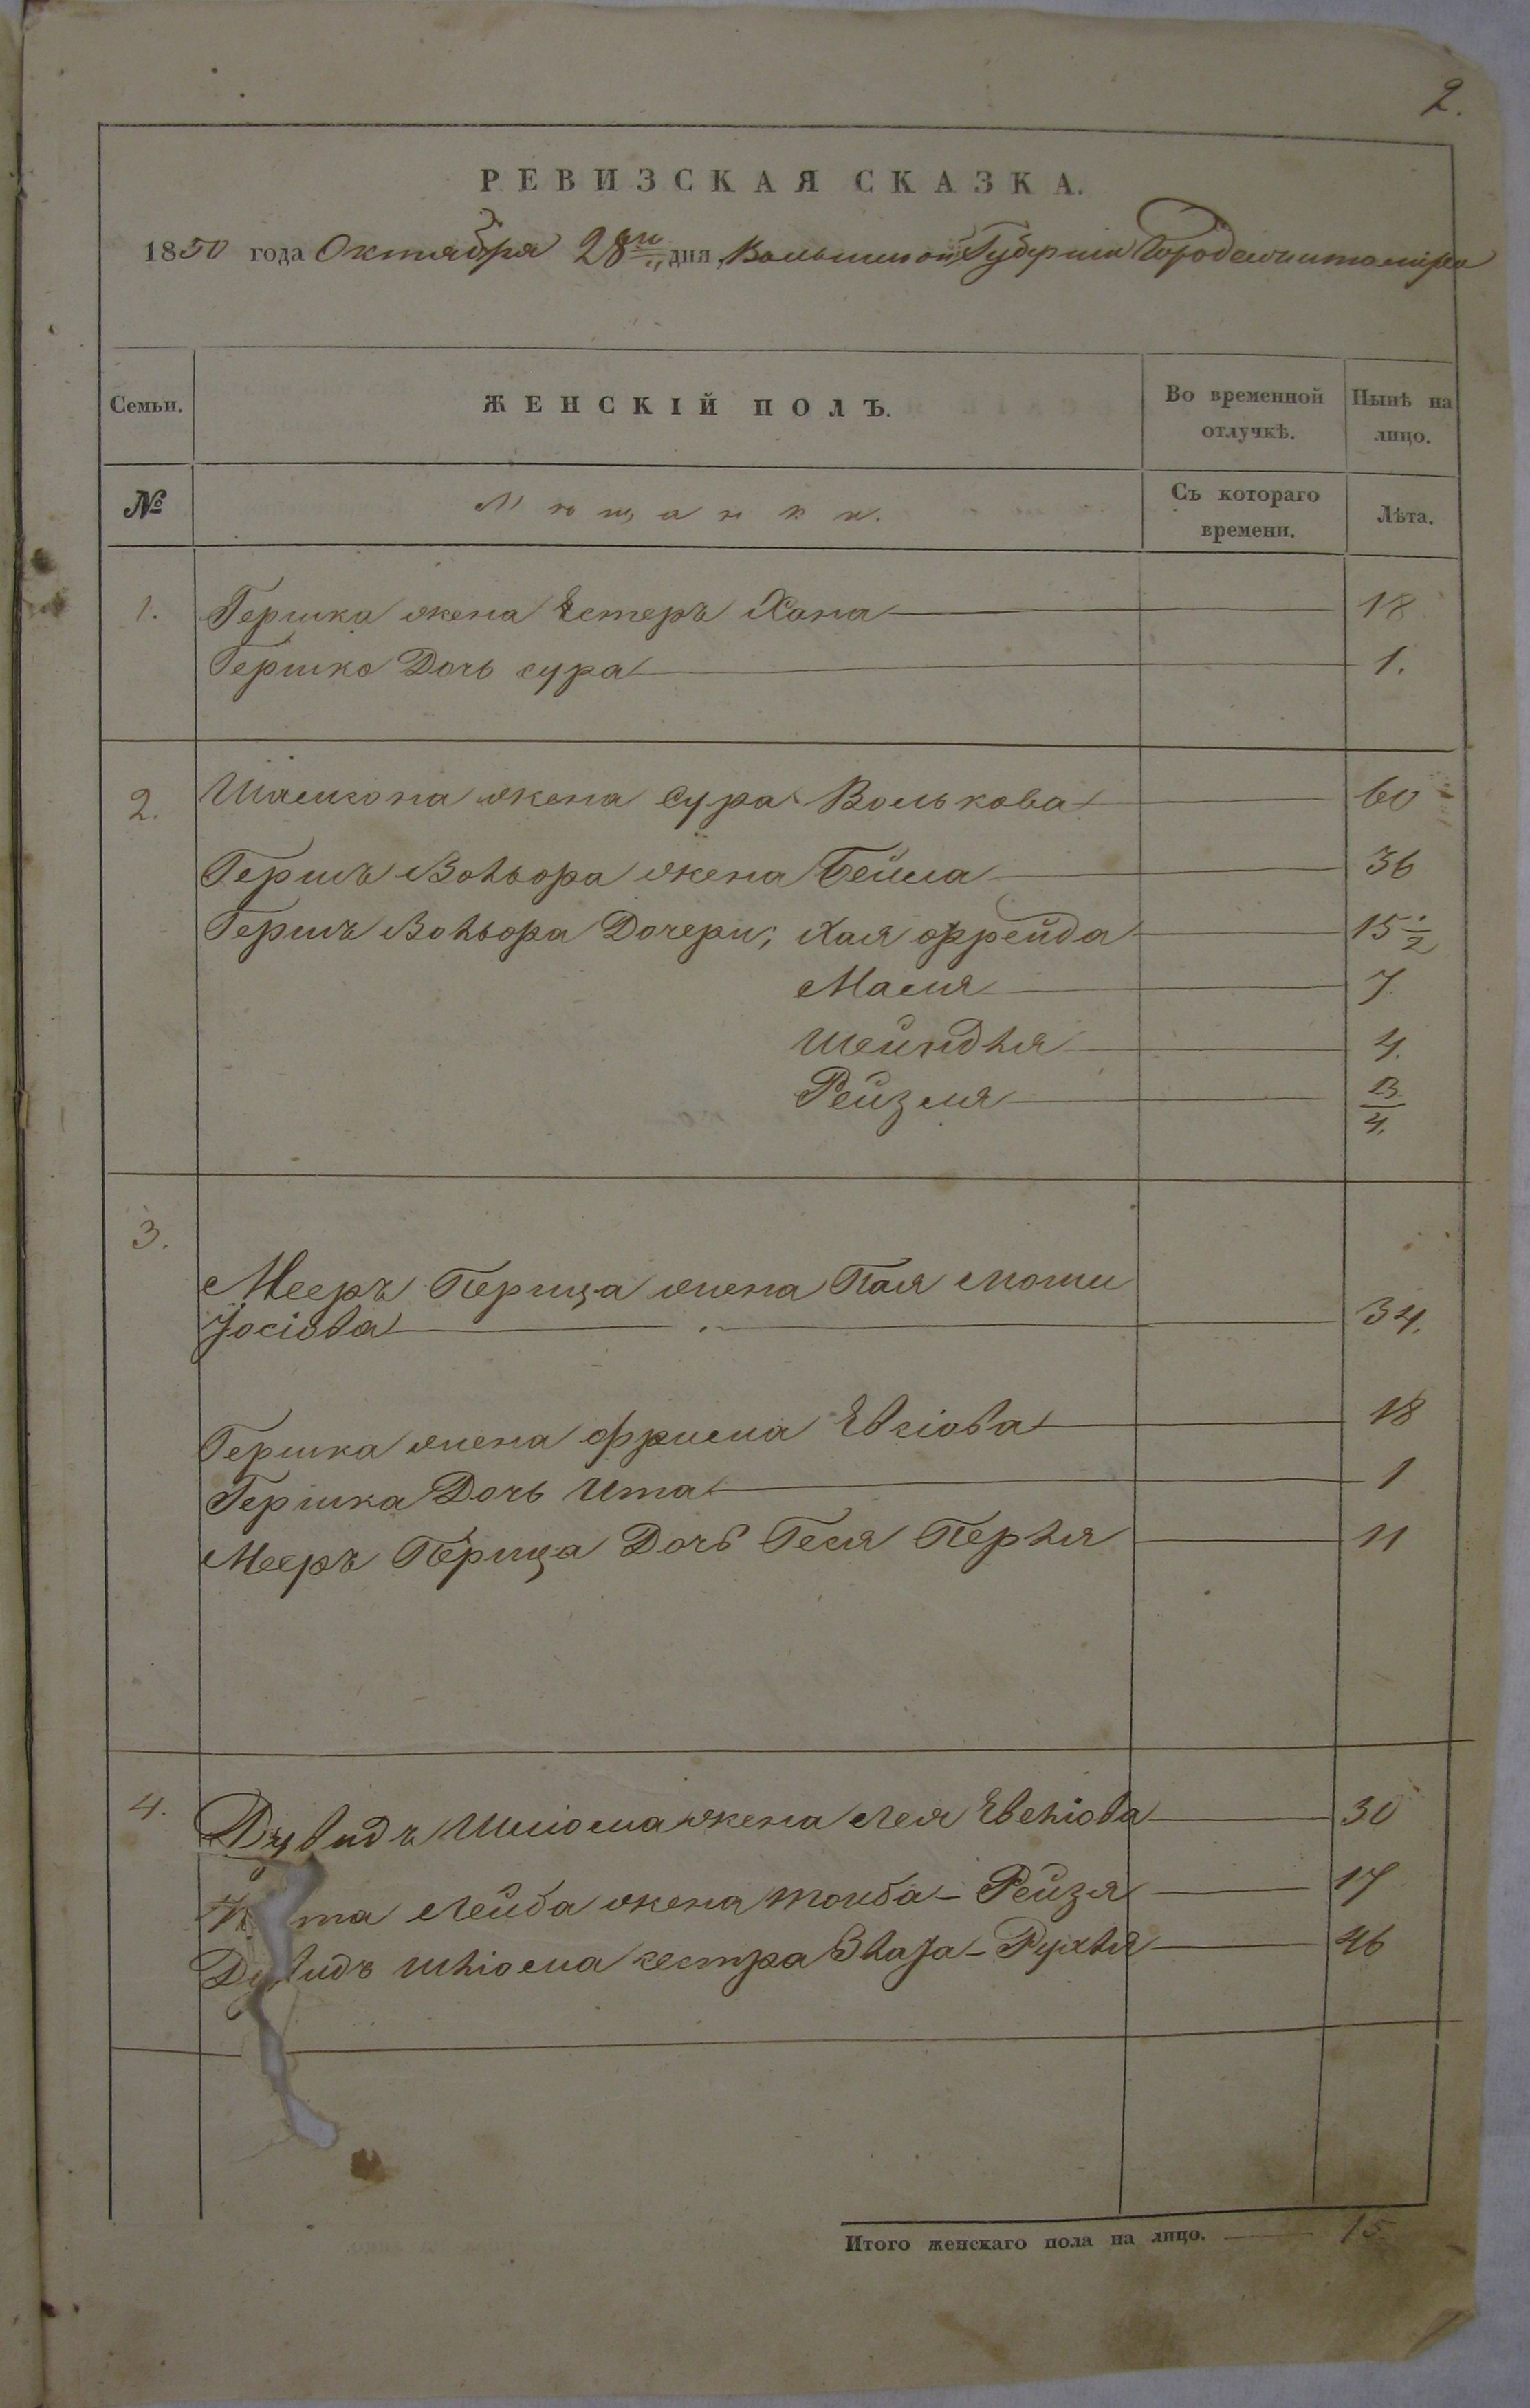 2.
РЕВИЗСКАЯ СКАЗКА.
1850 года Октября 28го дня, Волынской Губернии Города Житомира
Семьи. ЖЕНСКІЙ ПОЛЪ. Во временной отлучкѣ. Нынѣ на лицо.
№ Мѣщанки. Съ котораго времени. Лѣта.
1. Гершка жена Естеръ Хана 18
Гершко Дочь сура 1.
2. жена Сура Волькова 60
Гершъ Вольора жена Бейла 36
Гершъ Вольора Дочери; Хая фрейда 15 1/2
Масля 7
Шейндля 4.
Рейзля 3/4.
3.
Мееръ Перица жена Пая
Јосіова 34.
Гершка жена 18
Гершка Дочь Ита 1
Мееръ Перица Дочь Геля Перля 11
4. Дувидъ Шліома жена Лея 30
та Лейба жена тойба - Рейзя 17
Дувидъ шліома сестра Злата - Рухля 46
Итого женскаго пола на лицо. 15